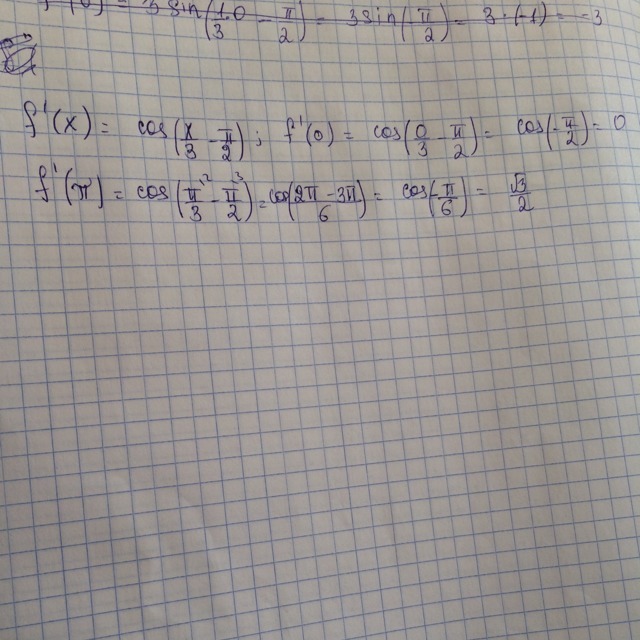 f (0) = 3 sin(1·0/3 − π/2) = 3 sin(π/2) = 3·(-1) = −3
f'(x) = cos(x/3 − π/2); f'(0) = cos(0/3 − π/2) = cos(-π/2) = 0
f'(π) = cos(π²/3 − π³/2) = cos(2π − 3π/6) = cos(π/6) = √3/2